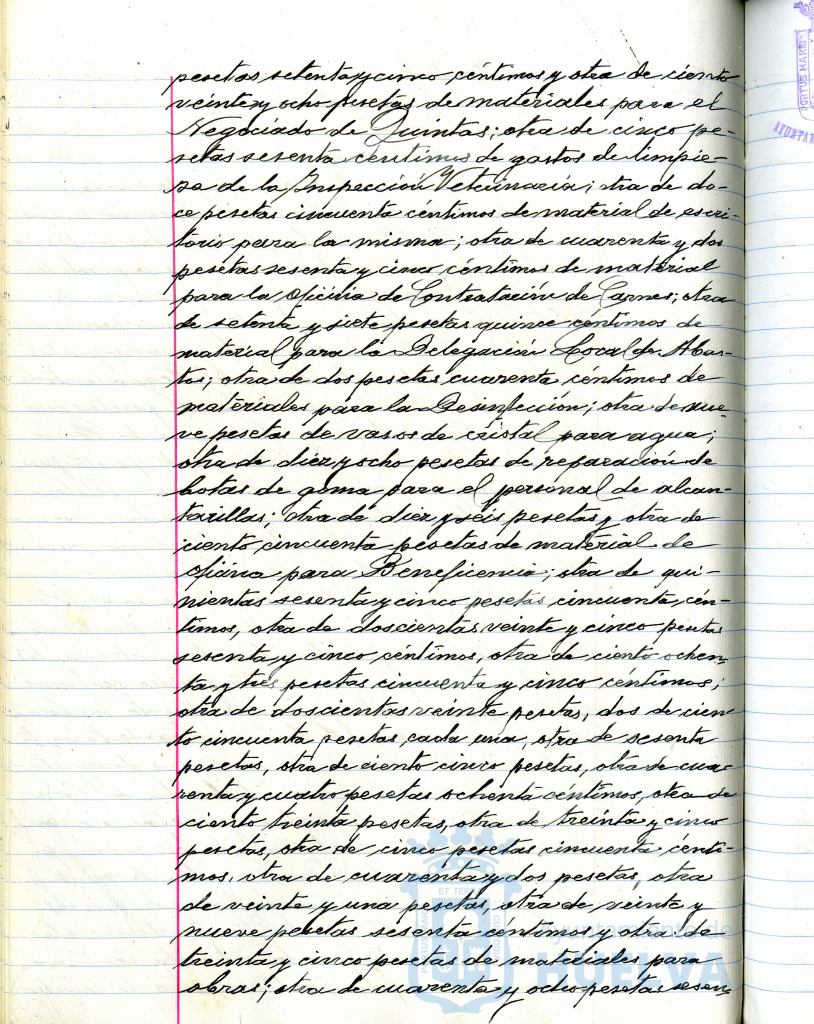 pesetas setenta y cinco céntimos y otra de ciento
veinte y ocho pesetas de materiales para el
Negociado de Quintas; otra de cinco pe-
setas sesenta centimos de gastos de limpie-
sa de la Inspección Veterinaria; otra de do-
ce pesetas cincuenta céntimos de material de escri-
torio para la misma; otra de cuarenta y dos
pesetas sesenta y cinco céntimos de material
para la oficina de Contratación de Carnes; otra
de setenta y siete pesetas quince céntimos de
material para la Delegación Local de Abas-
tos; otra de dos pesetas cuarenta céntimos de
materiales para la Desinfección; otra de nue-
ve pesetas de vasos de cristal para agua;
otra de diez y ocho pesetas de reparación de
botas de goma para el personal de alcan-
tarillas; otra de diez y seis pesetas y otra de
ciento cincuenta pesetas de material de
oficina para Beneficencia; otra de qui-
nientas sesenta y cinco pesetas cincuenta cén-
timos, otra de doscientas veinte y cinco pesetas
sesenta y cinco céntimos, otra de ciento ochen-
ta y tres pesetas cincuenta y cinco centimos;
otra de doscientas veinte pesetas, dos de cien-
to cincuenta pesetas cada una, otra de sesenta
pesetas, otra de ciento cinco pesetas, otra de cua-
renta y cuatro pesetas ochenta céntimos, otra de
ciento treinta pesetas, otra de treinta y cinco
pesetas, otra de cinco pesetas cincuenta cénti-
mos, otra de cuarenta y dos pesetas, otra
de veinte y una pesetas, otra de veinte y
nueve pesetas sesenta céntimos y otra de
treinta y cinco pesetas de materiales para
obras; otra de cuarenta y ocho pesetas sesen-
PORTUS MARIS
AYUNTA
ET TERRÆ
Ayuntamiento de
HUELVA